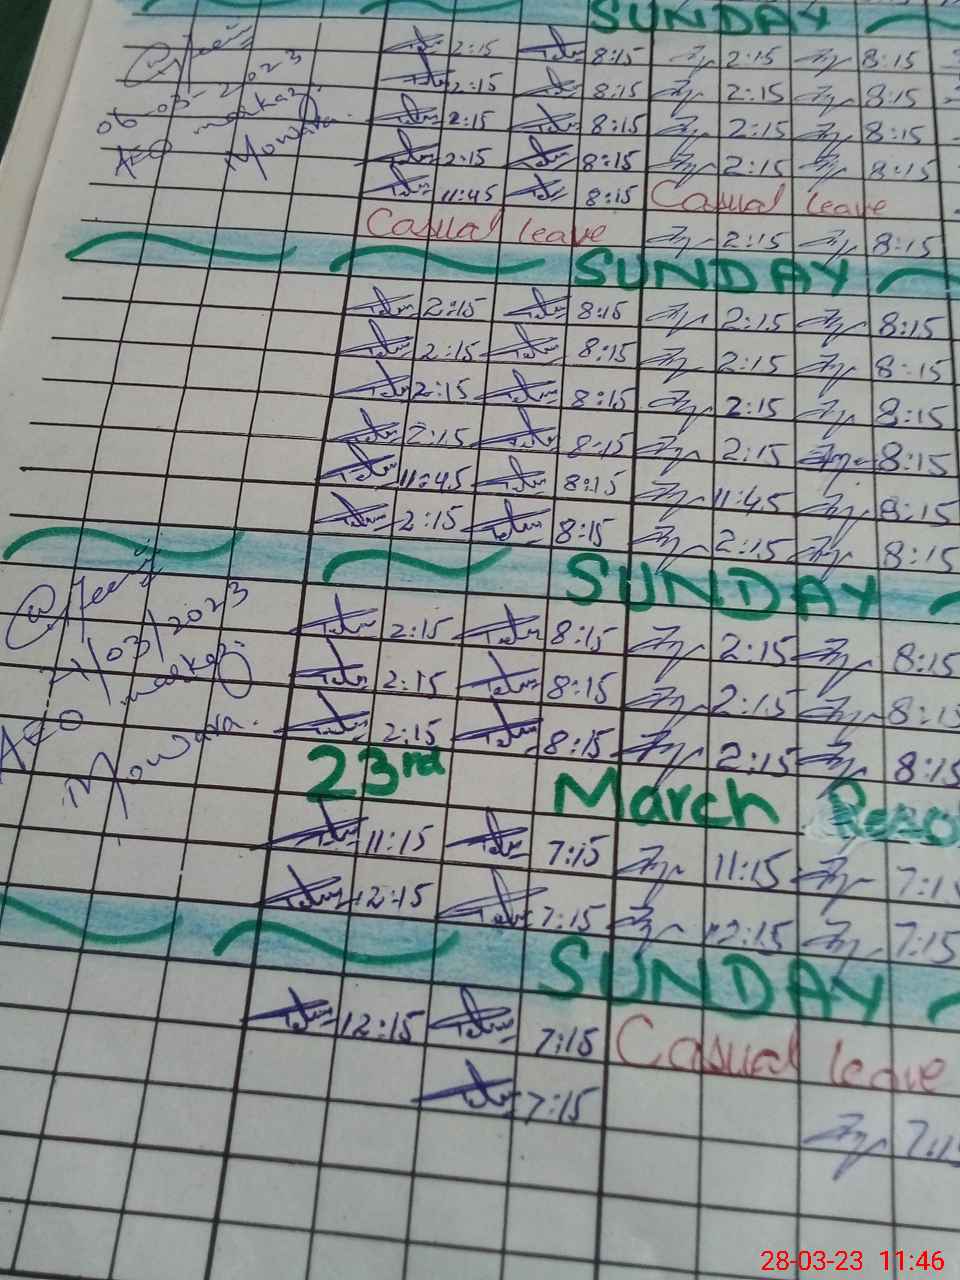 SUNDAY
2:15 8:15 2:15 8:15
2:15 8:15 2:15 8:15
06-03-2023
2:15 8:15 2:15 8:15
markaz
AEO Mowara.
2:15 8:15 2:15 8:15
11:45 8:15 Casual leave
Casual leave 2:15 8:15
SUNDAY
2:15 8:15 2:15 8:15
2:15 8:15 2:15 8:15
2:15 8:15 2:15 8:15
2:15 8:15 2:15 8:15
11:45 8:15 11:45 8:15
2:15 8:15 2:15 8:15
SUNDAY
2:15 8:15 2:15 8:15
/03/2023
2:15 8:15 2:15 8:15
markaz
AEO
2:15 8:15 2:15 8:15
Mowara.
23rd March
11:15 7:15 11:15 7:1
12:15 7:15 12:15 7:15
SUNDAY
12:15 7:15 Casual leave
7:15 7:1
28-03-23 11:46